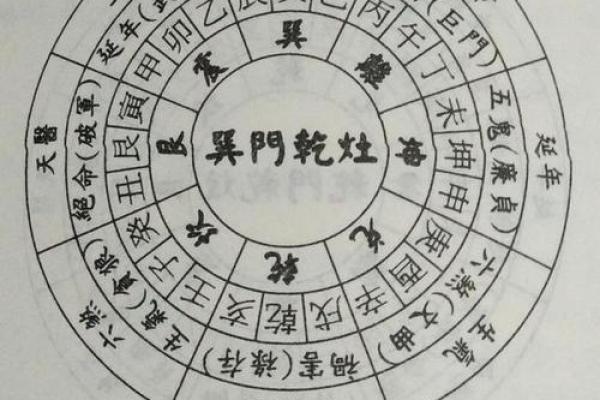 巽門乾灶
巽
離
坤
兌
乾
坎
艮
震
丙
午
丁
未
坤
申
庚
酉
辛
戌
乾
亥
壬
子
癸
丑
艮
寅
甲
卯
乙
辰
(巨門)
五鬼(廉貞)
六煞(文曲)
禍害(祿存)
生氣(貪狼)
絕命(破軍)
延年(武
延年
生氣
六煞
天醫